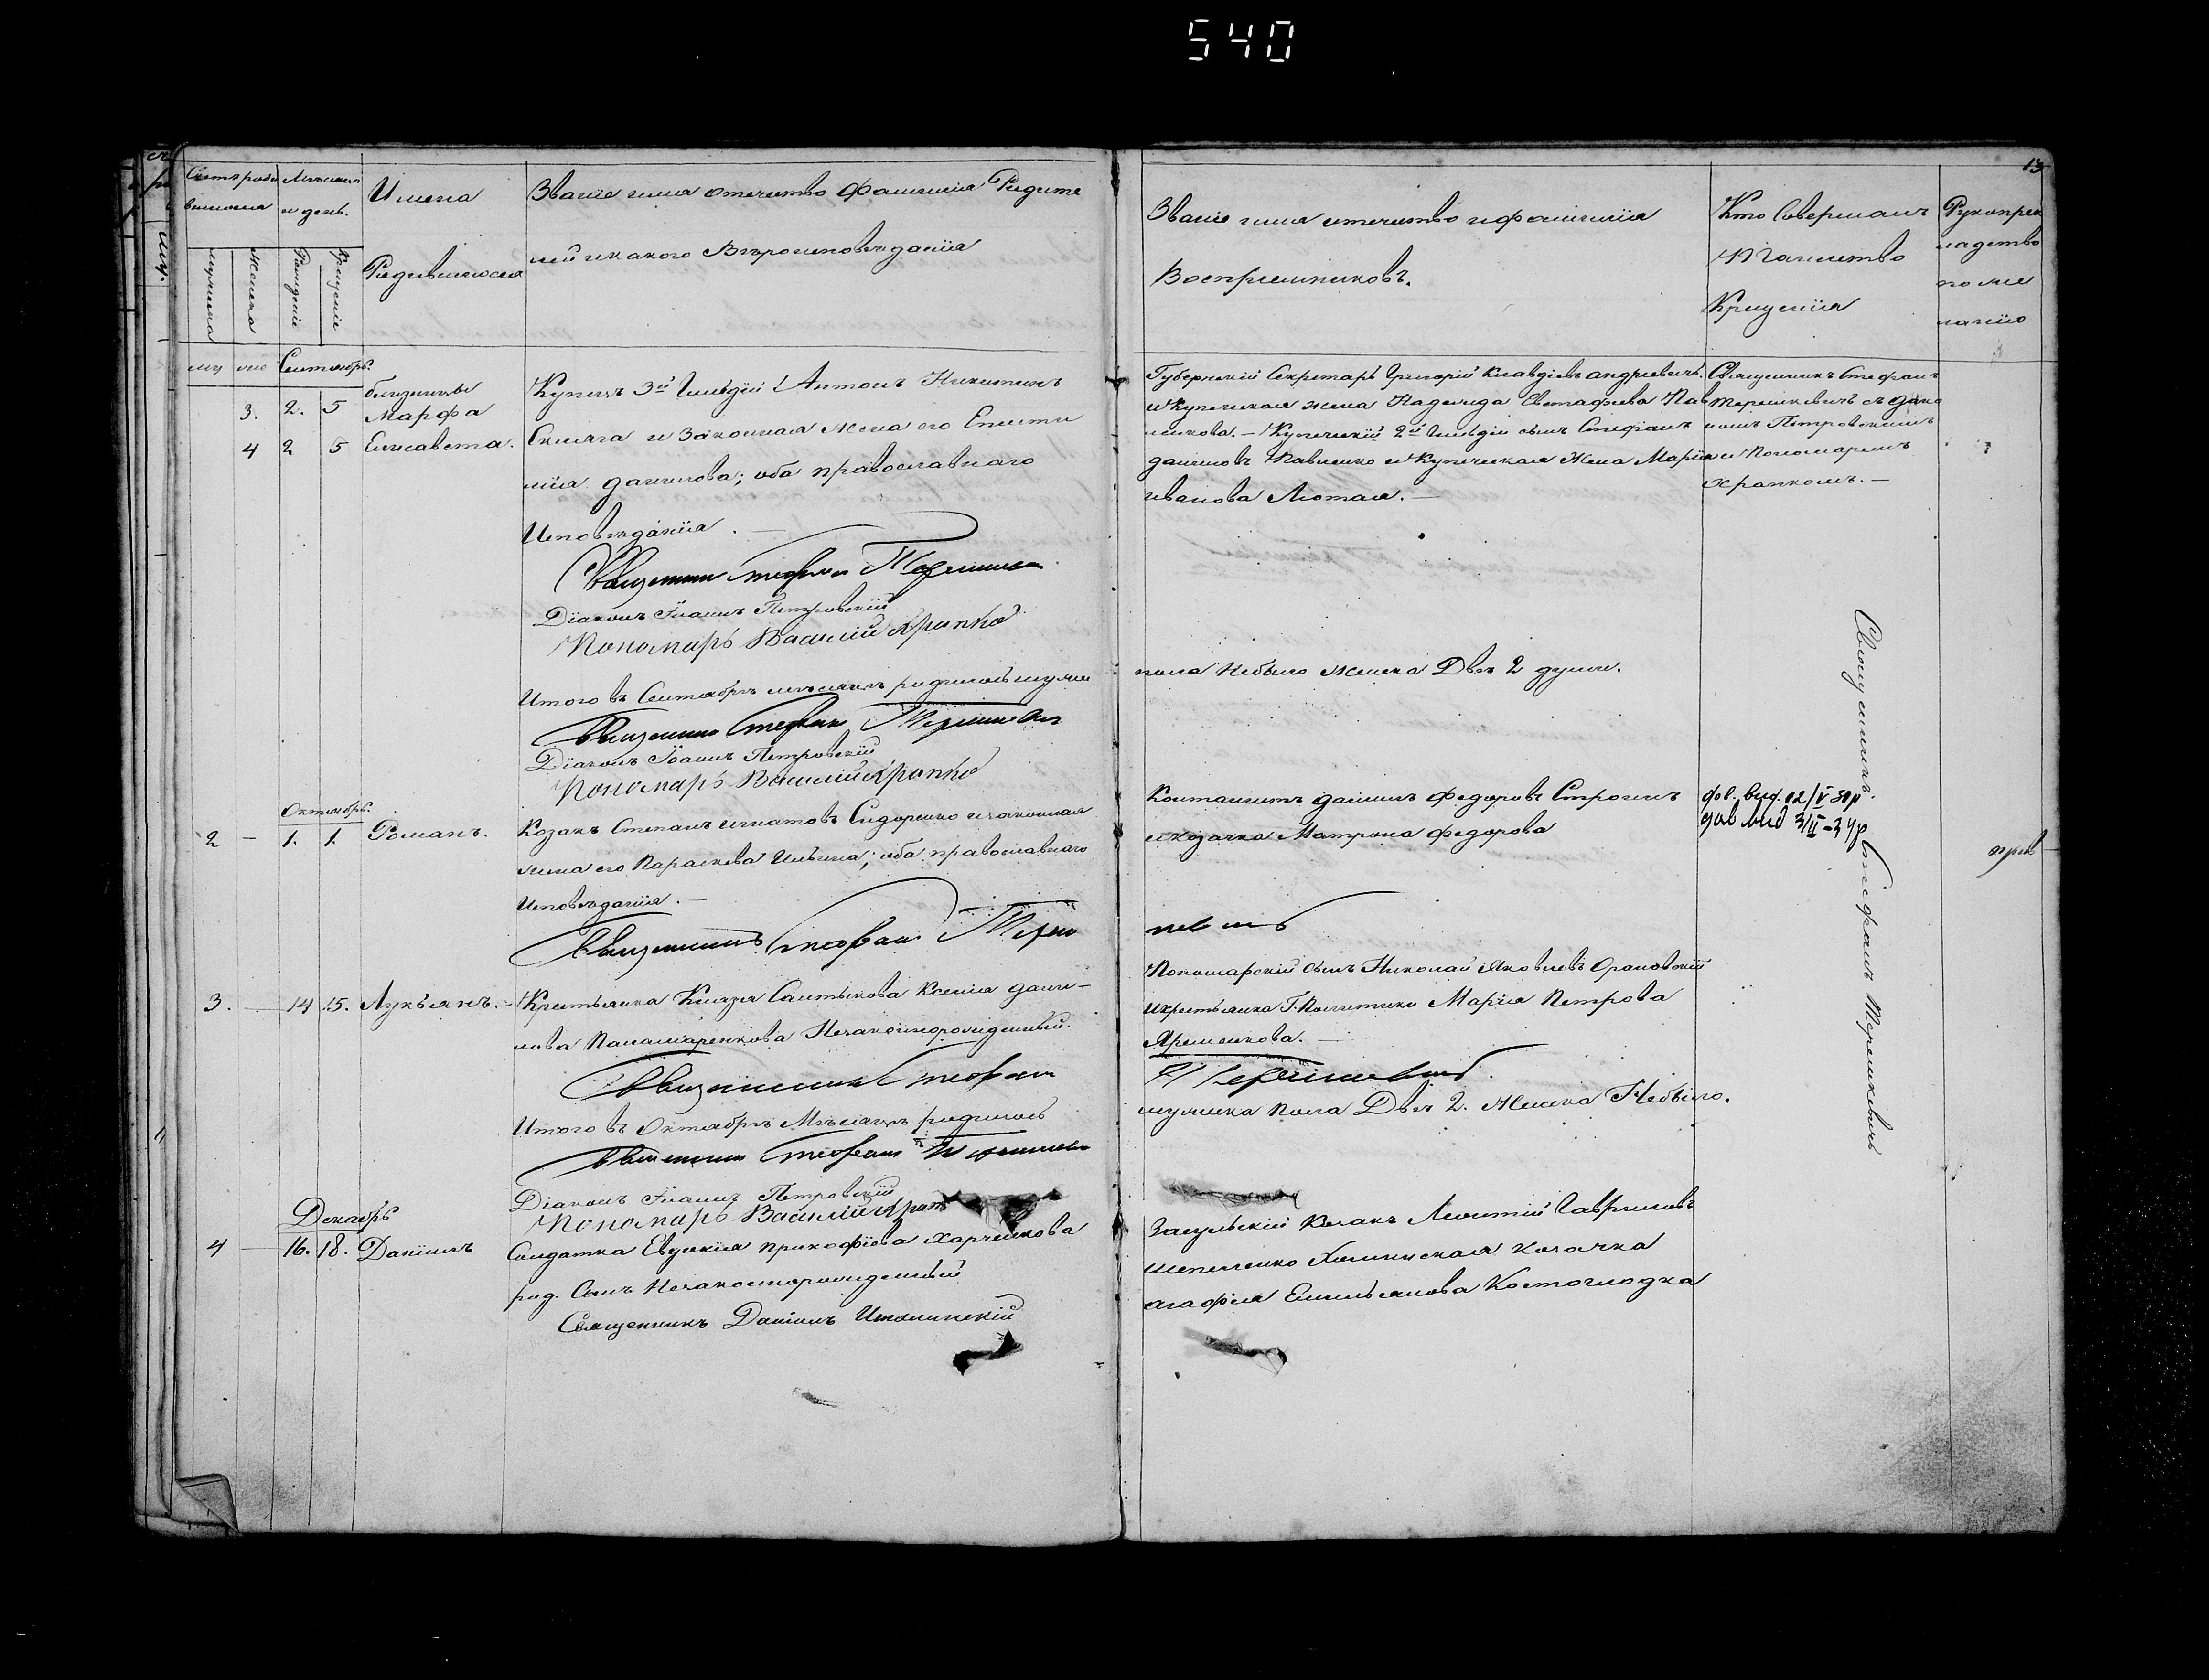 540
13
Счетъ роди
вшихся
Мѣсяцъ
и день.
Имена
Родившихся
Званіе имя отечество фамилія Родите
лей и какого Вѣроисповѣданія
Званіе имя отечество и фамилія
Воспріемниковъ.
Кто Совершалъ
Таинство
Крещенія
Рукопрек
ладство
по же
ланію
мужска
женска
Рожденіе
Крещеніе
му
же
Сентябрь.
3. 2. 5
близнецы
Марфа
4 2 5 Елисавета.
Купецъ 3й Гильдіи Антонъ Никитинъ
и Законная жена его Еписти
мія Данилова; оба православнаго
Исповѣданія. —
Губернскій Секретарь Григорій Клавдіевъ Андріевичъ.
и Купеческая жена Надежда Евстафіева Пав
ленкова. — Купеческій 2й Гильдіи сынъ Стефанъ
Даниловъ Павленко и Купеческая Жена Марія
Иванова Лютая. —
Священникъ Стефанъ
Терешкевичъ съ Діако
номъ Петровскимъ
и Пономаремъ
Храпкомъ. —
Священникъ Стефанъ Терешкеви
Діаконъ Іоаннъ Петровскій
Пономарь Василій Храпко
Итого въ Сентябрѣ мѣсяцѣ родилось муже
пола Небыло женска Двѣ 2 души.
Священникъ Стефанъ Терешкевич
Діаконъ Іоаннъ Петровскій
Пономарь Василій Храпко
Октябрь.
2 — 1. 1. Романъ.
Козакъ Степанъ Игнатовъ Сидоренко и законная
жена его Параскева Ильина; оба православнаго
Исповѣданія. —
Данилъ Федоровъ
и козачка Матрона Федорова
Священникъ Стефанъ Тереш
кевичъ
3. — 14 15. Лукъянъ. —
Крестьянка Князя Салтыкова Ксенія Дани—
лова Паламаренкова Незаконнорожденный.
Пономарскій сынъ Николай Яковлевъ
и крестьянка Марія Петрова
Яременкова. —
Священникъ Стефан
Терешкевичъ
Итого въ Октябрѣ Мѣсяцѣ родилось
мужска пола Двѣ 2. Женска Небыло.
Священникъ Стефанъ Терешкев
Діаконъ Іоаннъ Петровскій
Пономарь Василій Храп
Священникъ Стефанъ Терешкевичъ
Декабрь
4 — 16. 18. Даніилъ
Солдатка Евдокія Прокофіева Харченкова
род. Сынъ Незаконнорожденный
Священникъ Даніилъ
Засульскій Козакъ Леонтій Гавриловъ
козачка
Агафія Емильянова Костоглодка